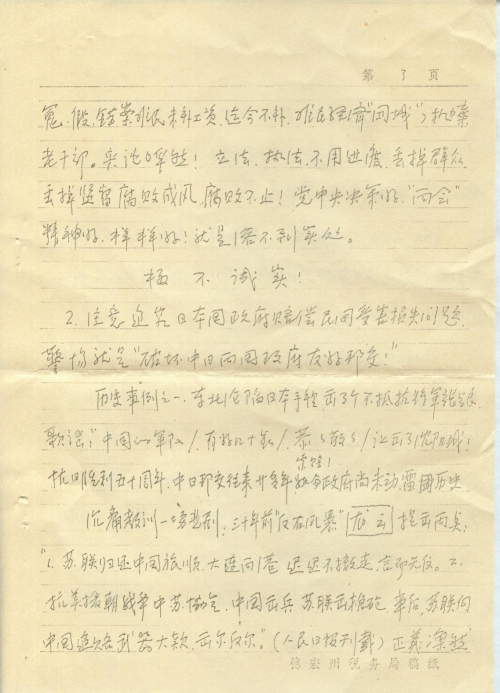 第 3 页
冤、假、错案难民未补工资、迄今不补,难民经济"回城",抛弃
老干部。舆论哗然!立法、执法、不用进废、丢掉群众
丢掉监督腐败成风,腐败不止!党中央决策好,"两会"
精神好,样样好!就是落不到实处。
极 不 诚 实!
2. 注意追究日本国政府赔偿民间受害损失问题,
警惕就是"破坏中日两国政府友好邦交!"
历史事例之一、东北沦陷日本手 出了个不抵抗将军张
歌谣:"中国的军队/有好几十万/恭恭敬敬/让出了沈阳城!
抗日胜利五十周年,中日邦交往来廿多年如今政府尚未动 国历史
沉痛教训一 悲剧,三十年前"反右风暴"龙云提出两点:
"1. 苏联归还中国旅顺、大连两港 迟迟不撤走,言而无信。2.
抗美援朝战争中苏协定,中国出兵 苏联出枪炮,事后,苏联向
中国追讨 武器大款,出尔反尔。"(人民日报刊载)正义凛然
德宏州税务局稿纸